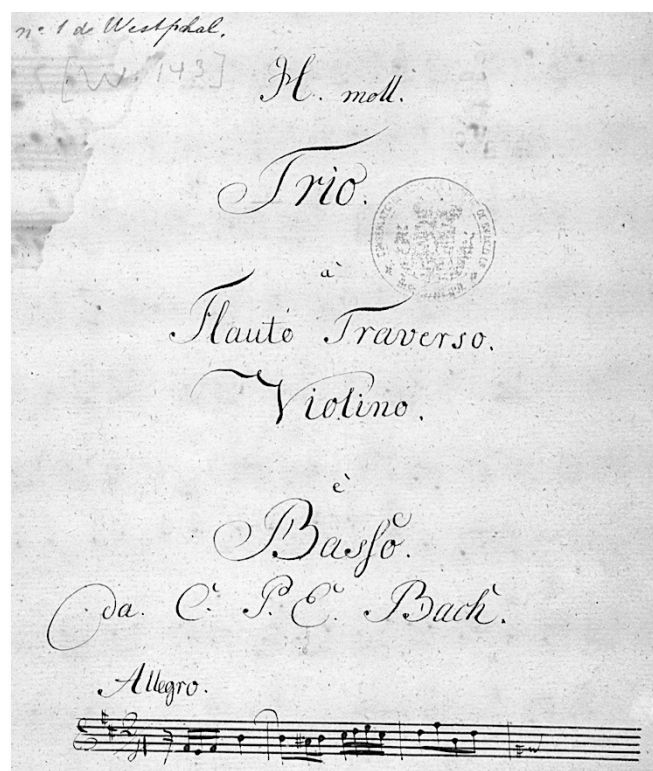 nº 1 de Westphal.
[W. 143]
H. moll.
Trio.
à
Flauto Traverso.
Violino.
è
Basso.
da. C. P. E. Bach.
Allegro.